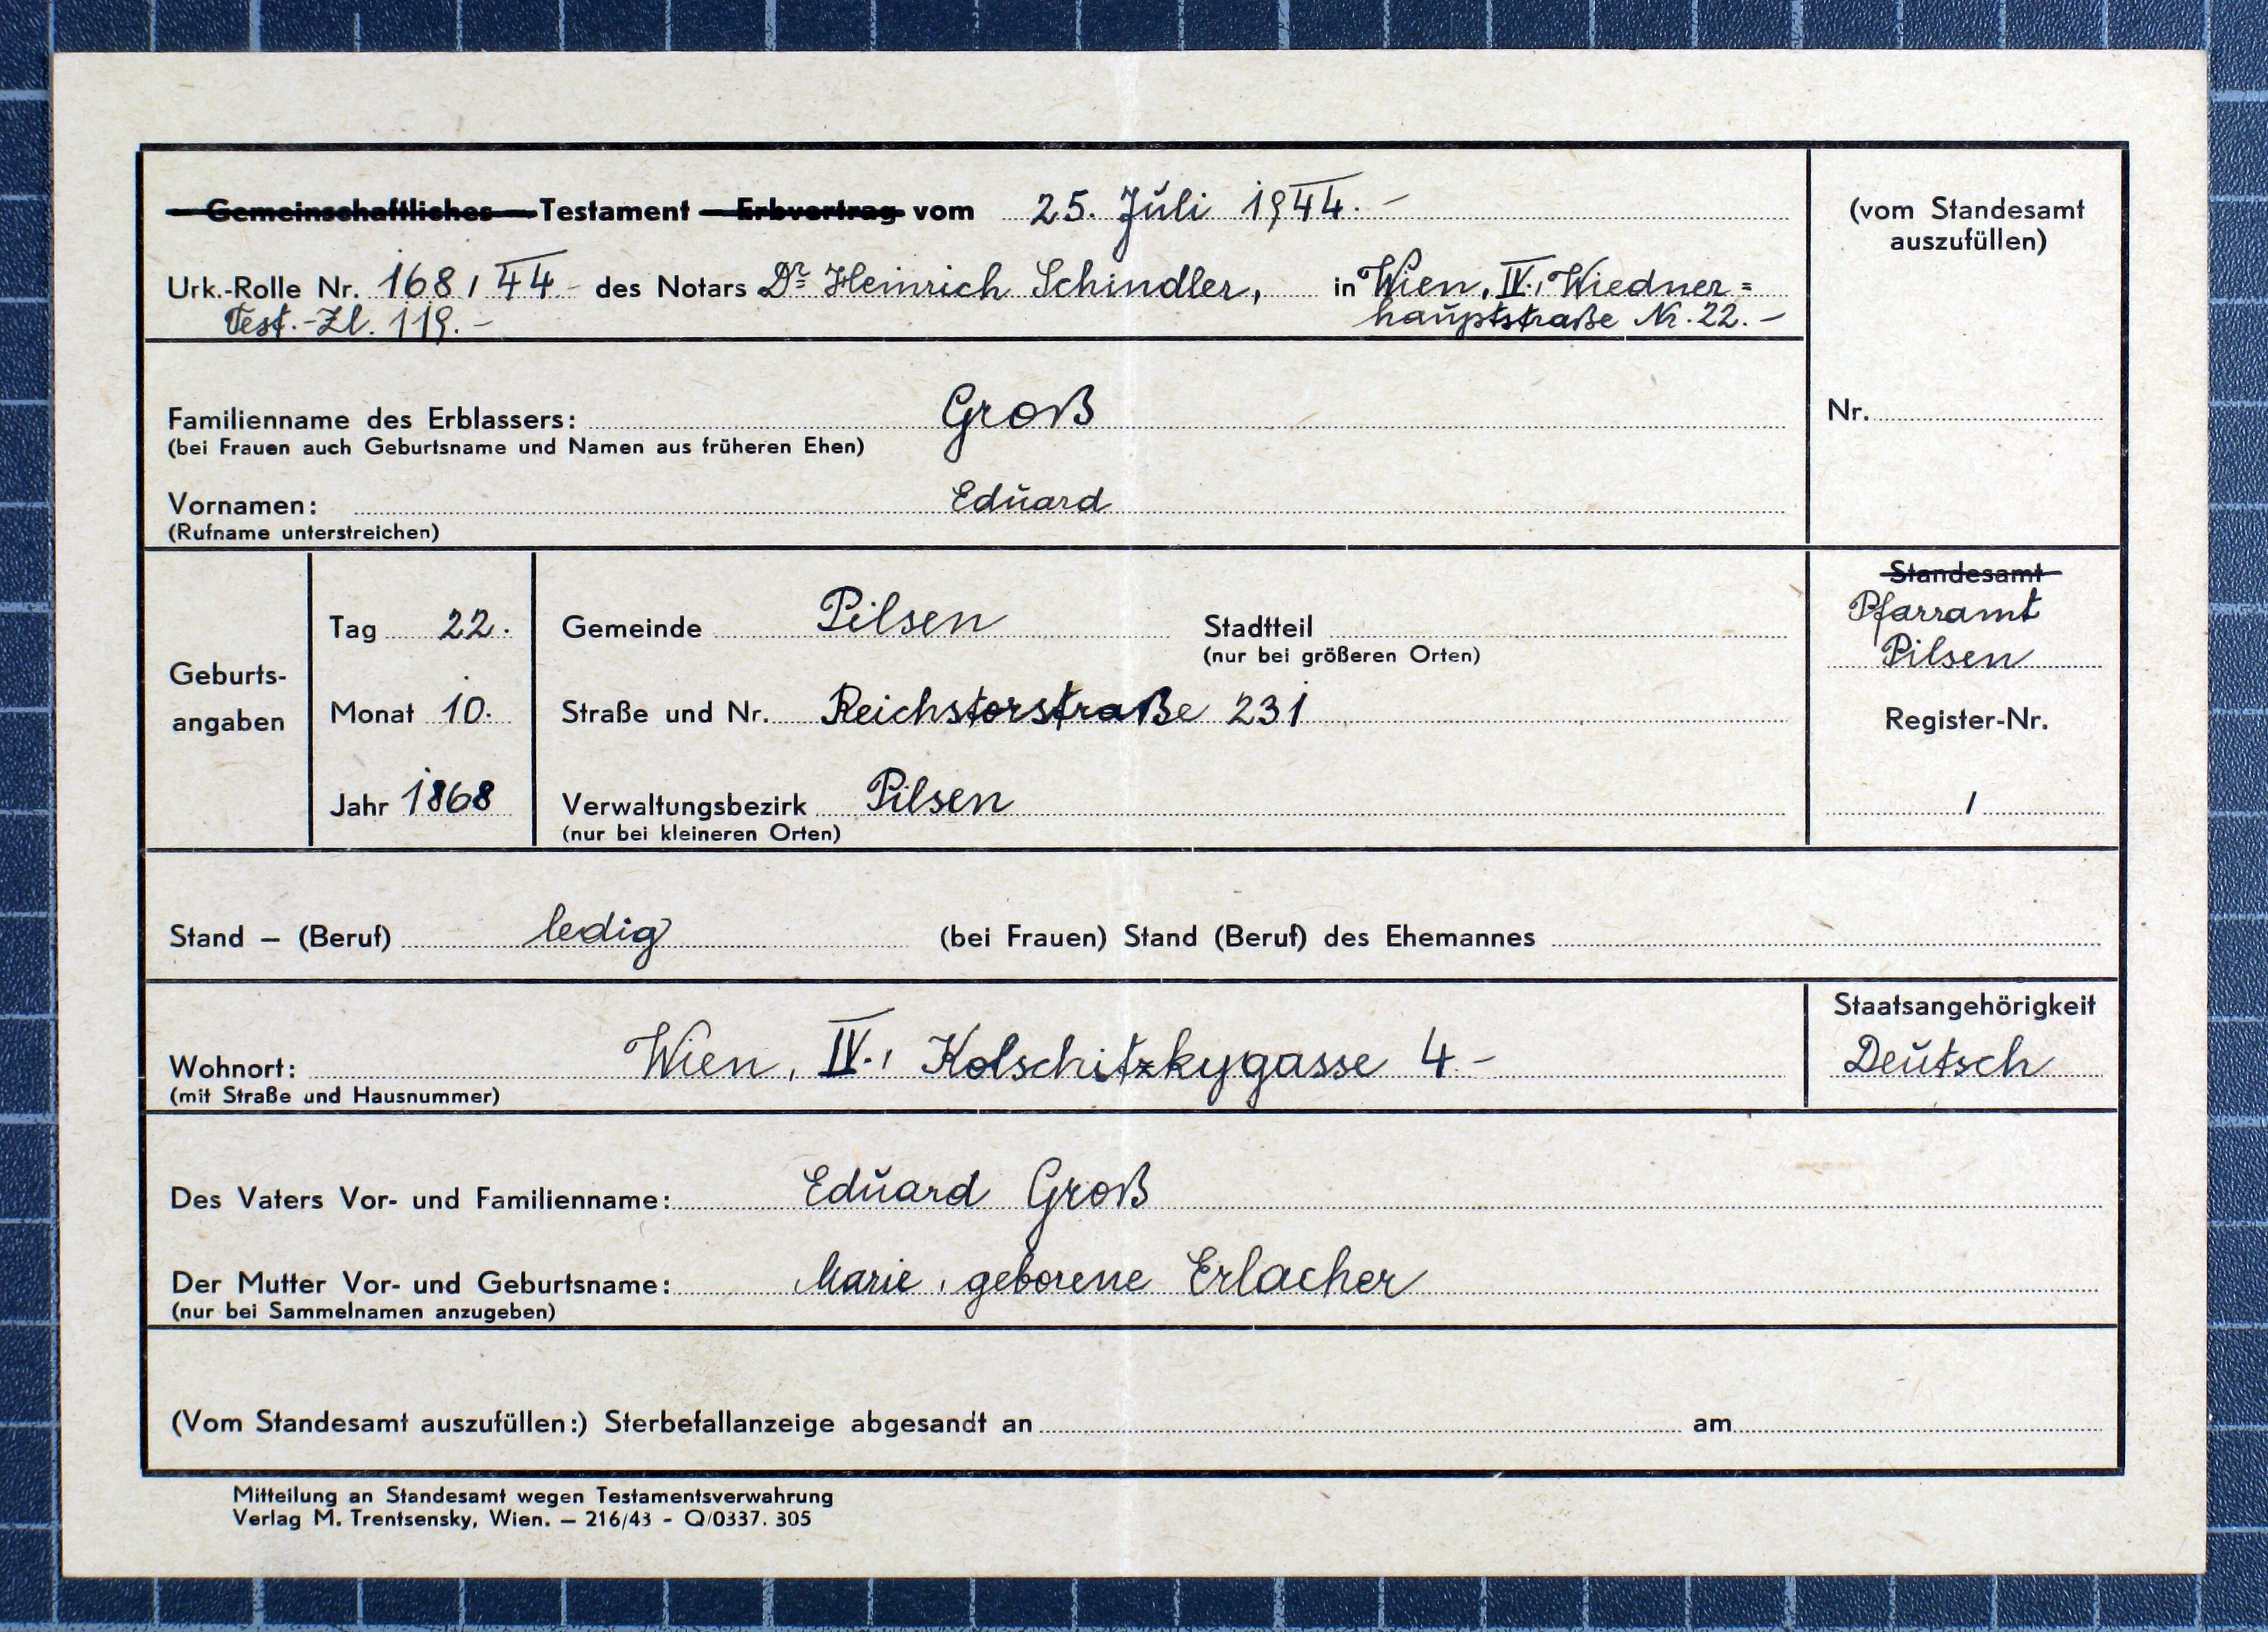 Gemeinschaftliches Testament Erbvertrag vom 25. Juli 1944. -
(vom Standesamt
auszufüllen)
Urk.-Rolle Nr. 168 / 44 - des Notars Dr. Heinrich Schindler, in Wien, IV., Wiedner=
Test.-Zl. 119. - hauptstraße Nr. 22. -
Familienname des Erblassers: Groß
(bei Frauen auch Geburtsname und Namen aus früheren Ehen)
Nr.
Vornamen: Eduard
(Rufname unterstreichen)
Geburts-
angaben
Tag 22.
Monat 10.
Jahr 1868
Gemeinde Pilsen Stadtteil
(nur bei größeren Orten)
Straße und Nr. Reichstorstraße 231
Verwaltungsbezirk Pilsen
(nur bei kleineren Orten)
Standesamt
Pfarramt
Pilsen
Register-Nr.
/
Stand – (Beruf) ledig (bei Frauen) Stand (Beruf) des Ehemannes
Wohnort: Wien, IV., Kolschitzkygasse 4 -
(mit Straße und Hausnummer)
Staatsangehörigkeit
Deutsch
Des Vaters Vor- und Familienname: Eduard Groß
Der Mutter Vor- und Geburtsname: Marie, geborene Erlacher
(nur bei Sammelnamen anzugeben)
(Vom Standesamt auszufüllen:) Sterbefallanzeige abgesandt an am
Mitteilung an Standesamt wegen Testamentsverwahrung
Verlag M. Trentsensky, Wien. — 216/43 - Q/0337. 305